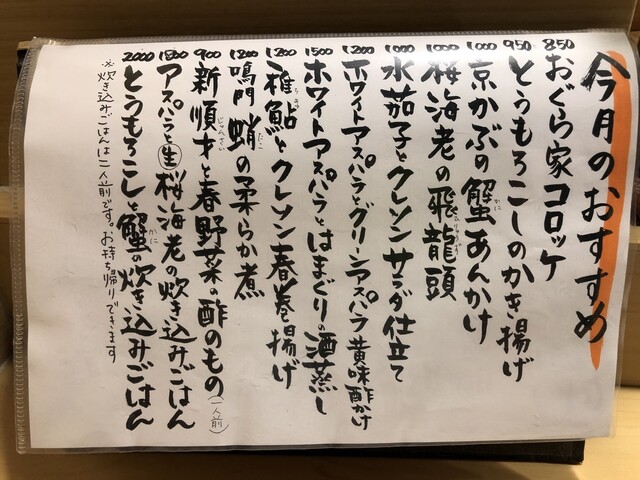 今月のおすすめ
850 おぐら家コロッケ
950 とうもろこしのかき揚げ
1000 京かぶの蟹あんかけ
かに
1000 桜海老の飛龍頭
ひりょうず
1000 水茄子とクレソンサラダ仕立て
1200 ホワイトアスパラとグリーンアスパラ 黄味酢かけ
1500 ホワイトアスパラとはまぐりの酒蒸し
1200 稚鮎とクレソン春巻揚げ
ちあゆ
1200 鳴門蛸の柔らか煮
たこ
900 新順才と春野菜の酢のもの(一人前)
じゅんさい
1800 アスパラと生桜海老の炊き込みごはん
2000 とうもろこしと蟹の炊き込みごはん
かに
※炊き込みごはんは二人前です。お持ち帰りできます